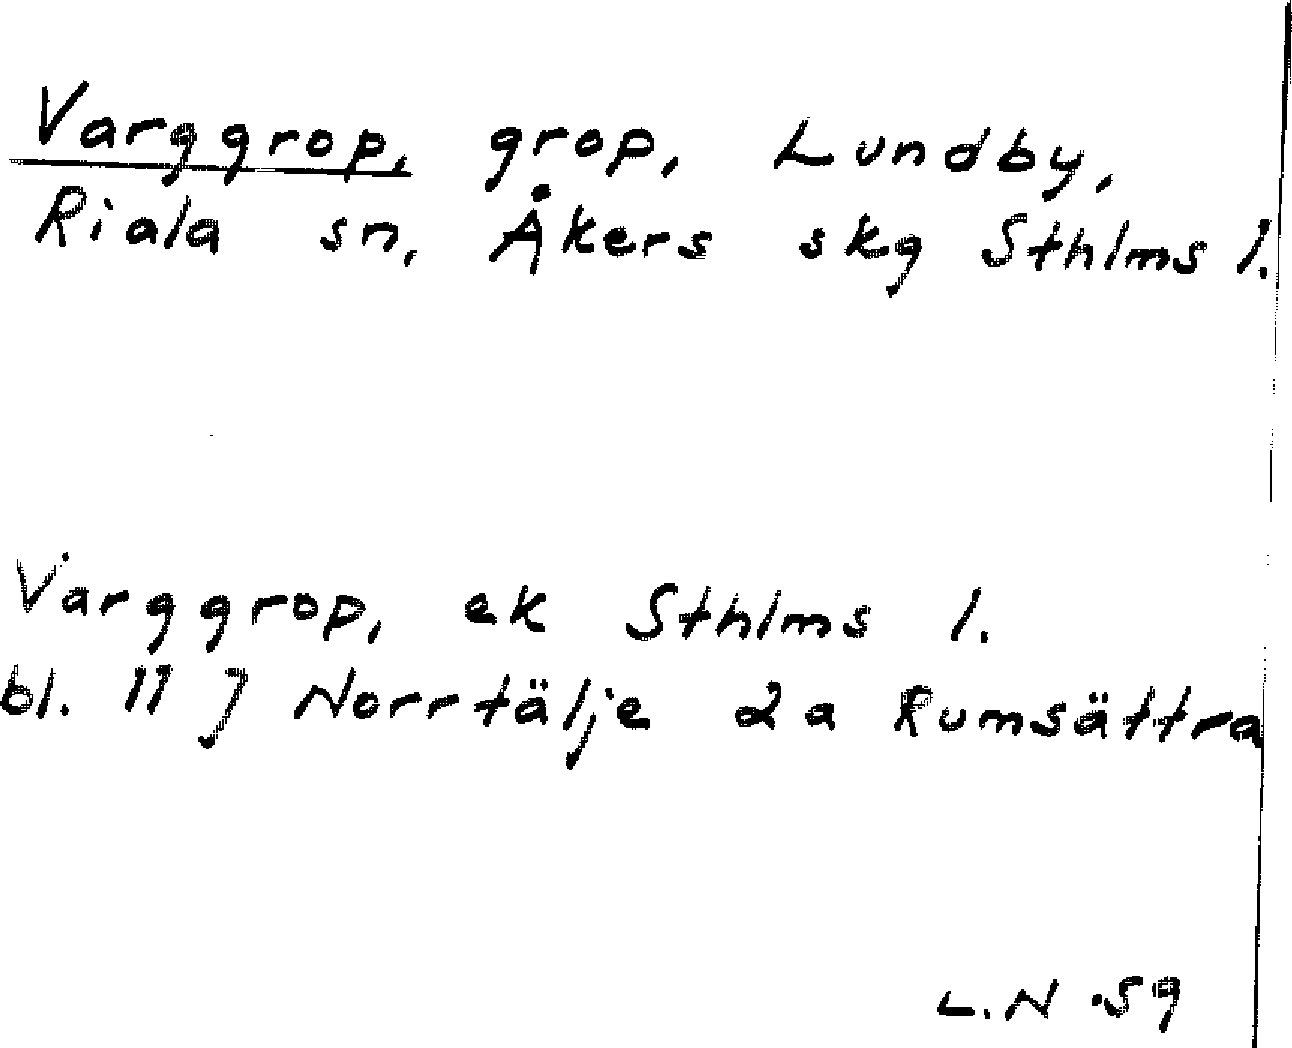 Varggrop, grop, Lundby,
Riala sn, Åkers skg Sthlms l.
Varggrop, ek Sthlms l.
bl. 11 J Norrtälje 2a Rumsättra
L.N .59